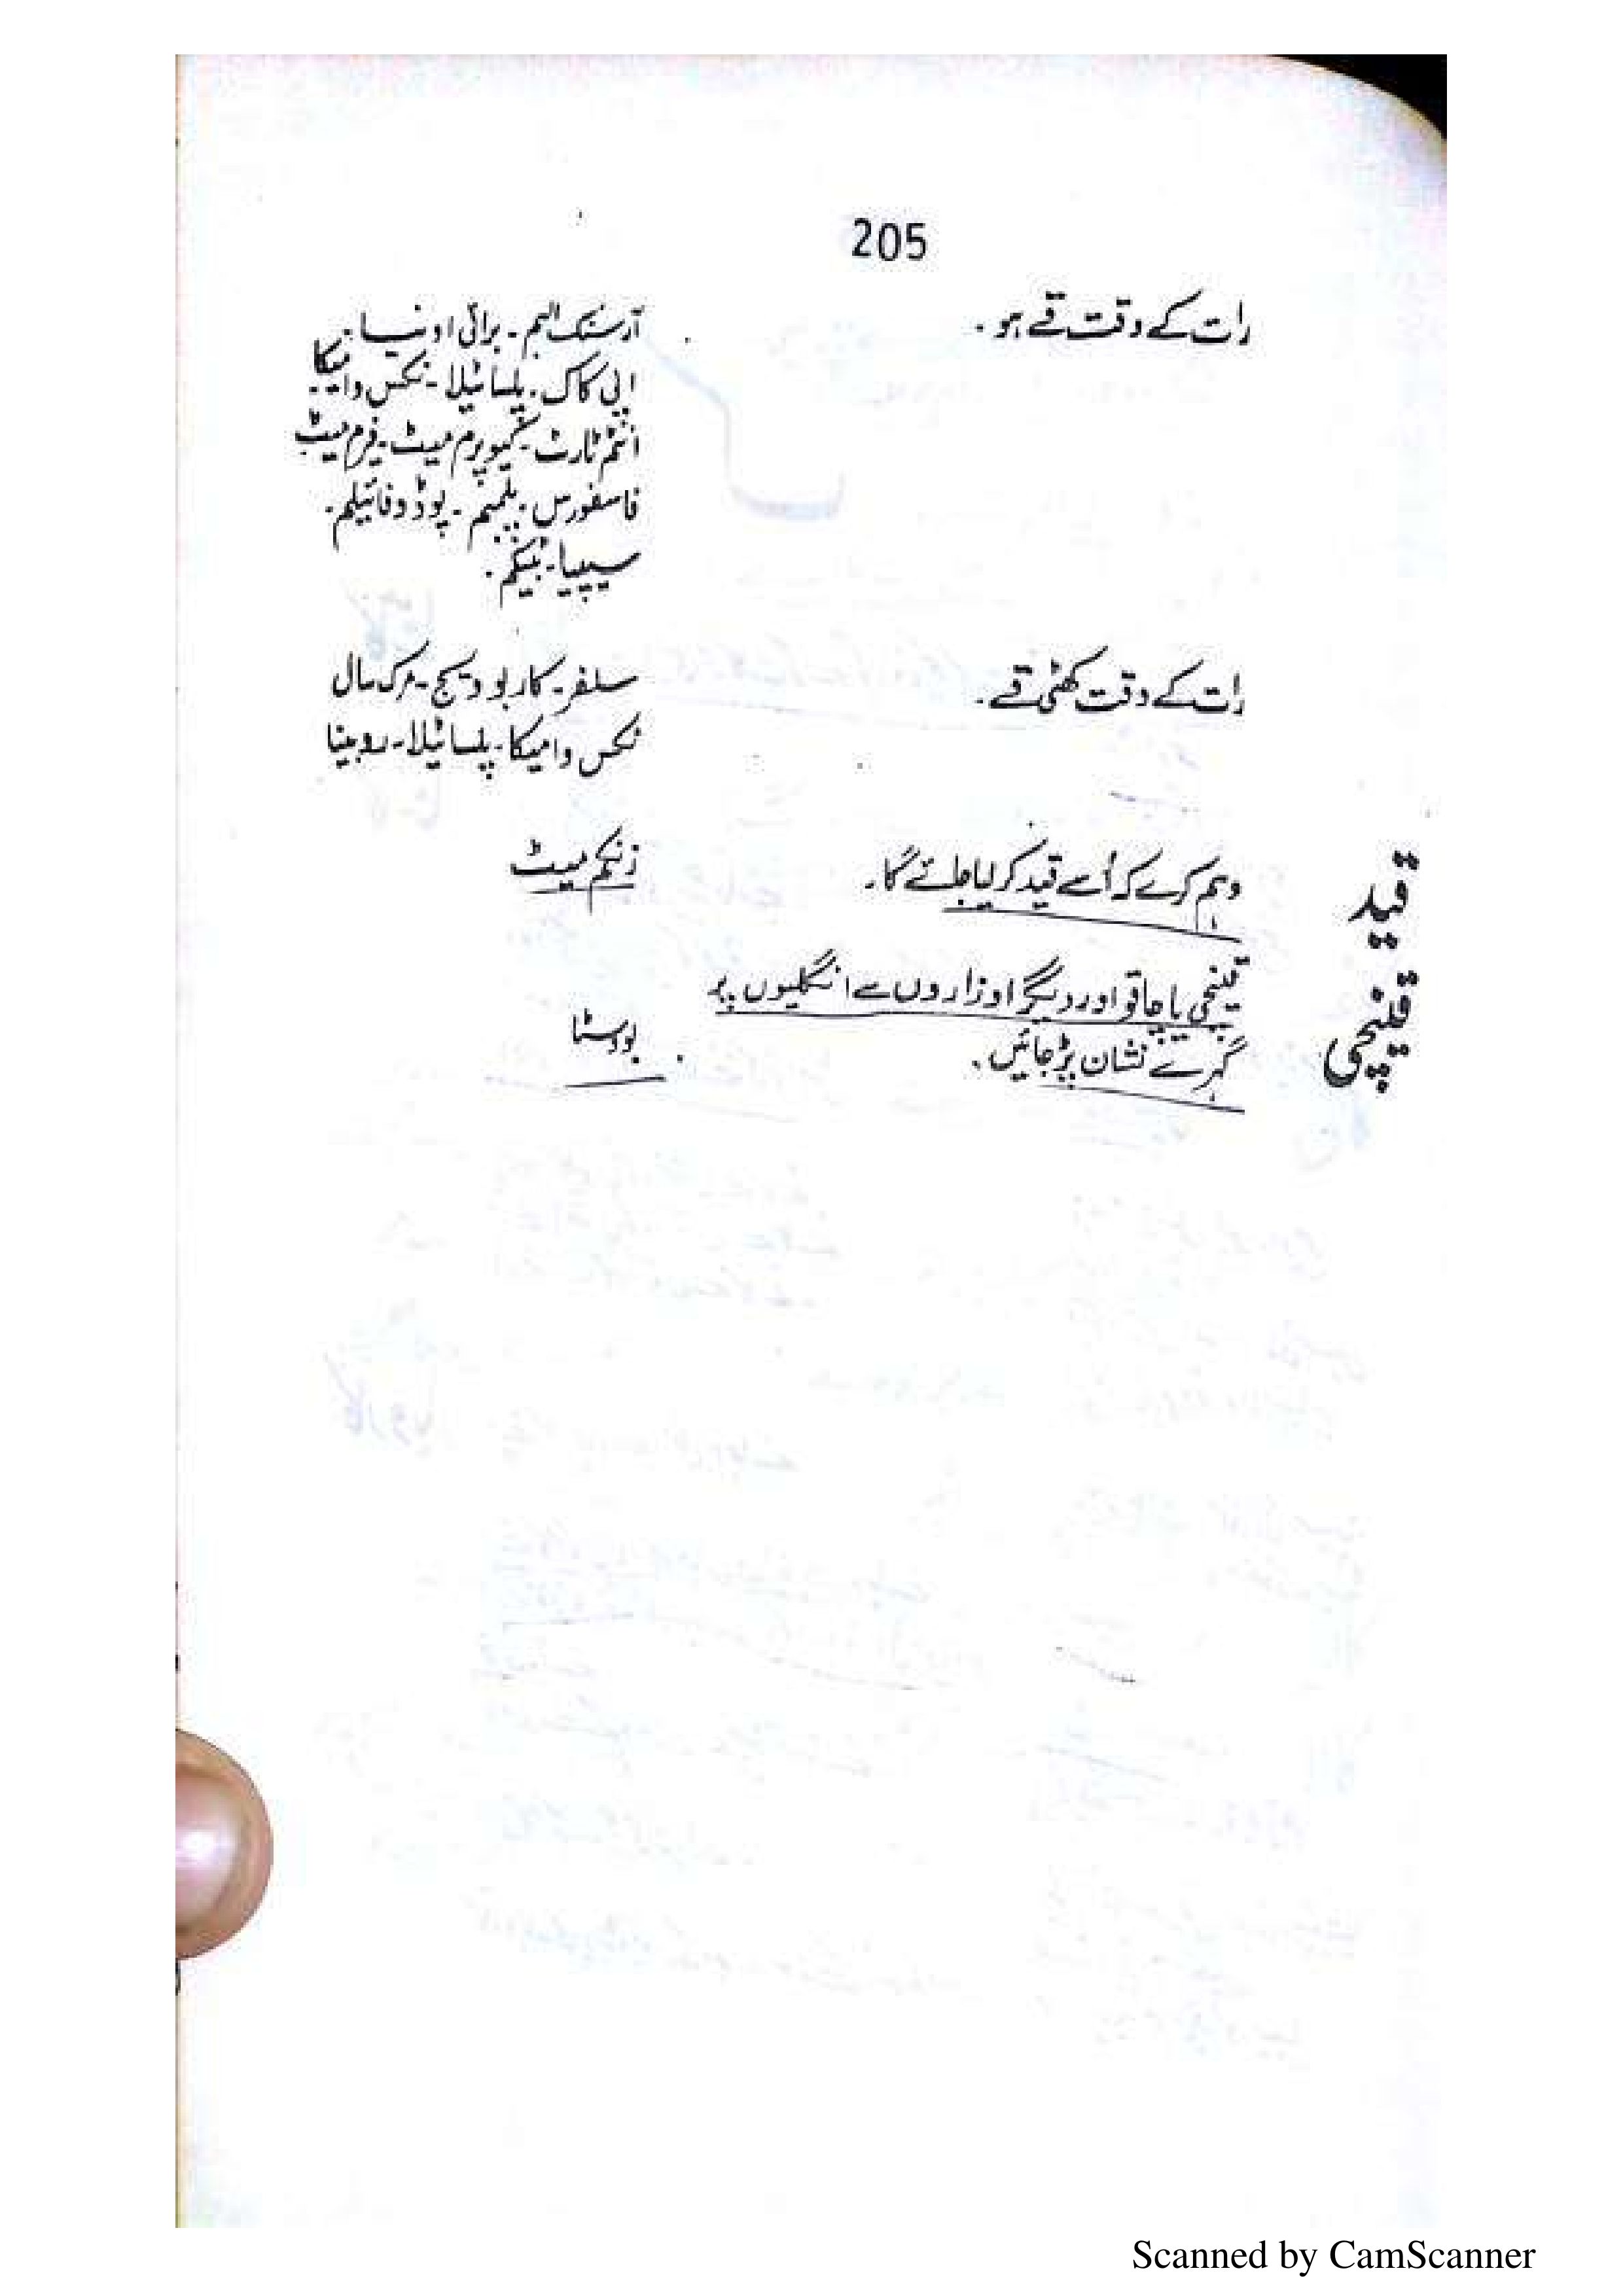 205
رات کے وقت قے ہو۔
آرسنک البم۔ برائی اونیا۔
اپی کاک۔ پلساٹیلا۔ نکس وامیکا۔
انٹم ٹارٹ۔ کیوپرم میٹ۔ فیرم میٹ
فاسفورس۔ پلمبم۔ پوڈوفائیلم۔
سیپیا۔ ٹبیکم۔
رات کے وقت کھٹی قے۔
سلفر۔ کاربو ویج۔ مرک سال
نکس وامیکا۔ پلساٹیلا۔ روبینا
قید
وہم کرے کہ اُسے قید کر لیا جائے گا۔
زنکم میٹ
قینچی
قینچی یا چاقو اور دیگر اوزاروں سے انگلیوں پر
گہرے نشان پڑ جائیں۔
بووسٹا
Scanned by CamScanner